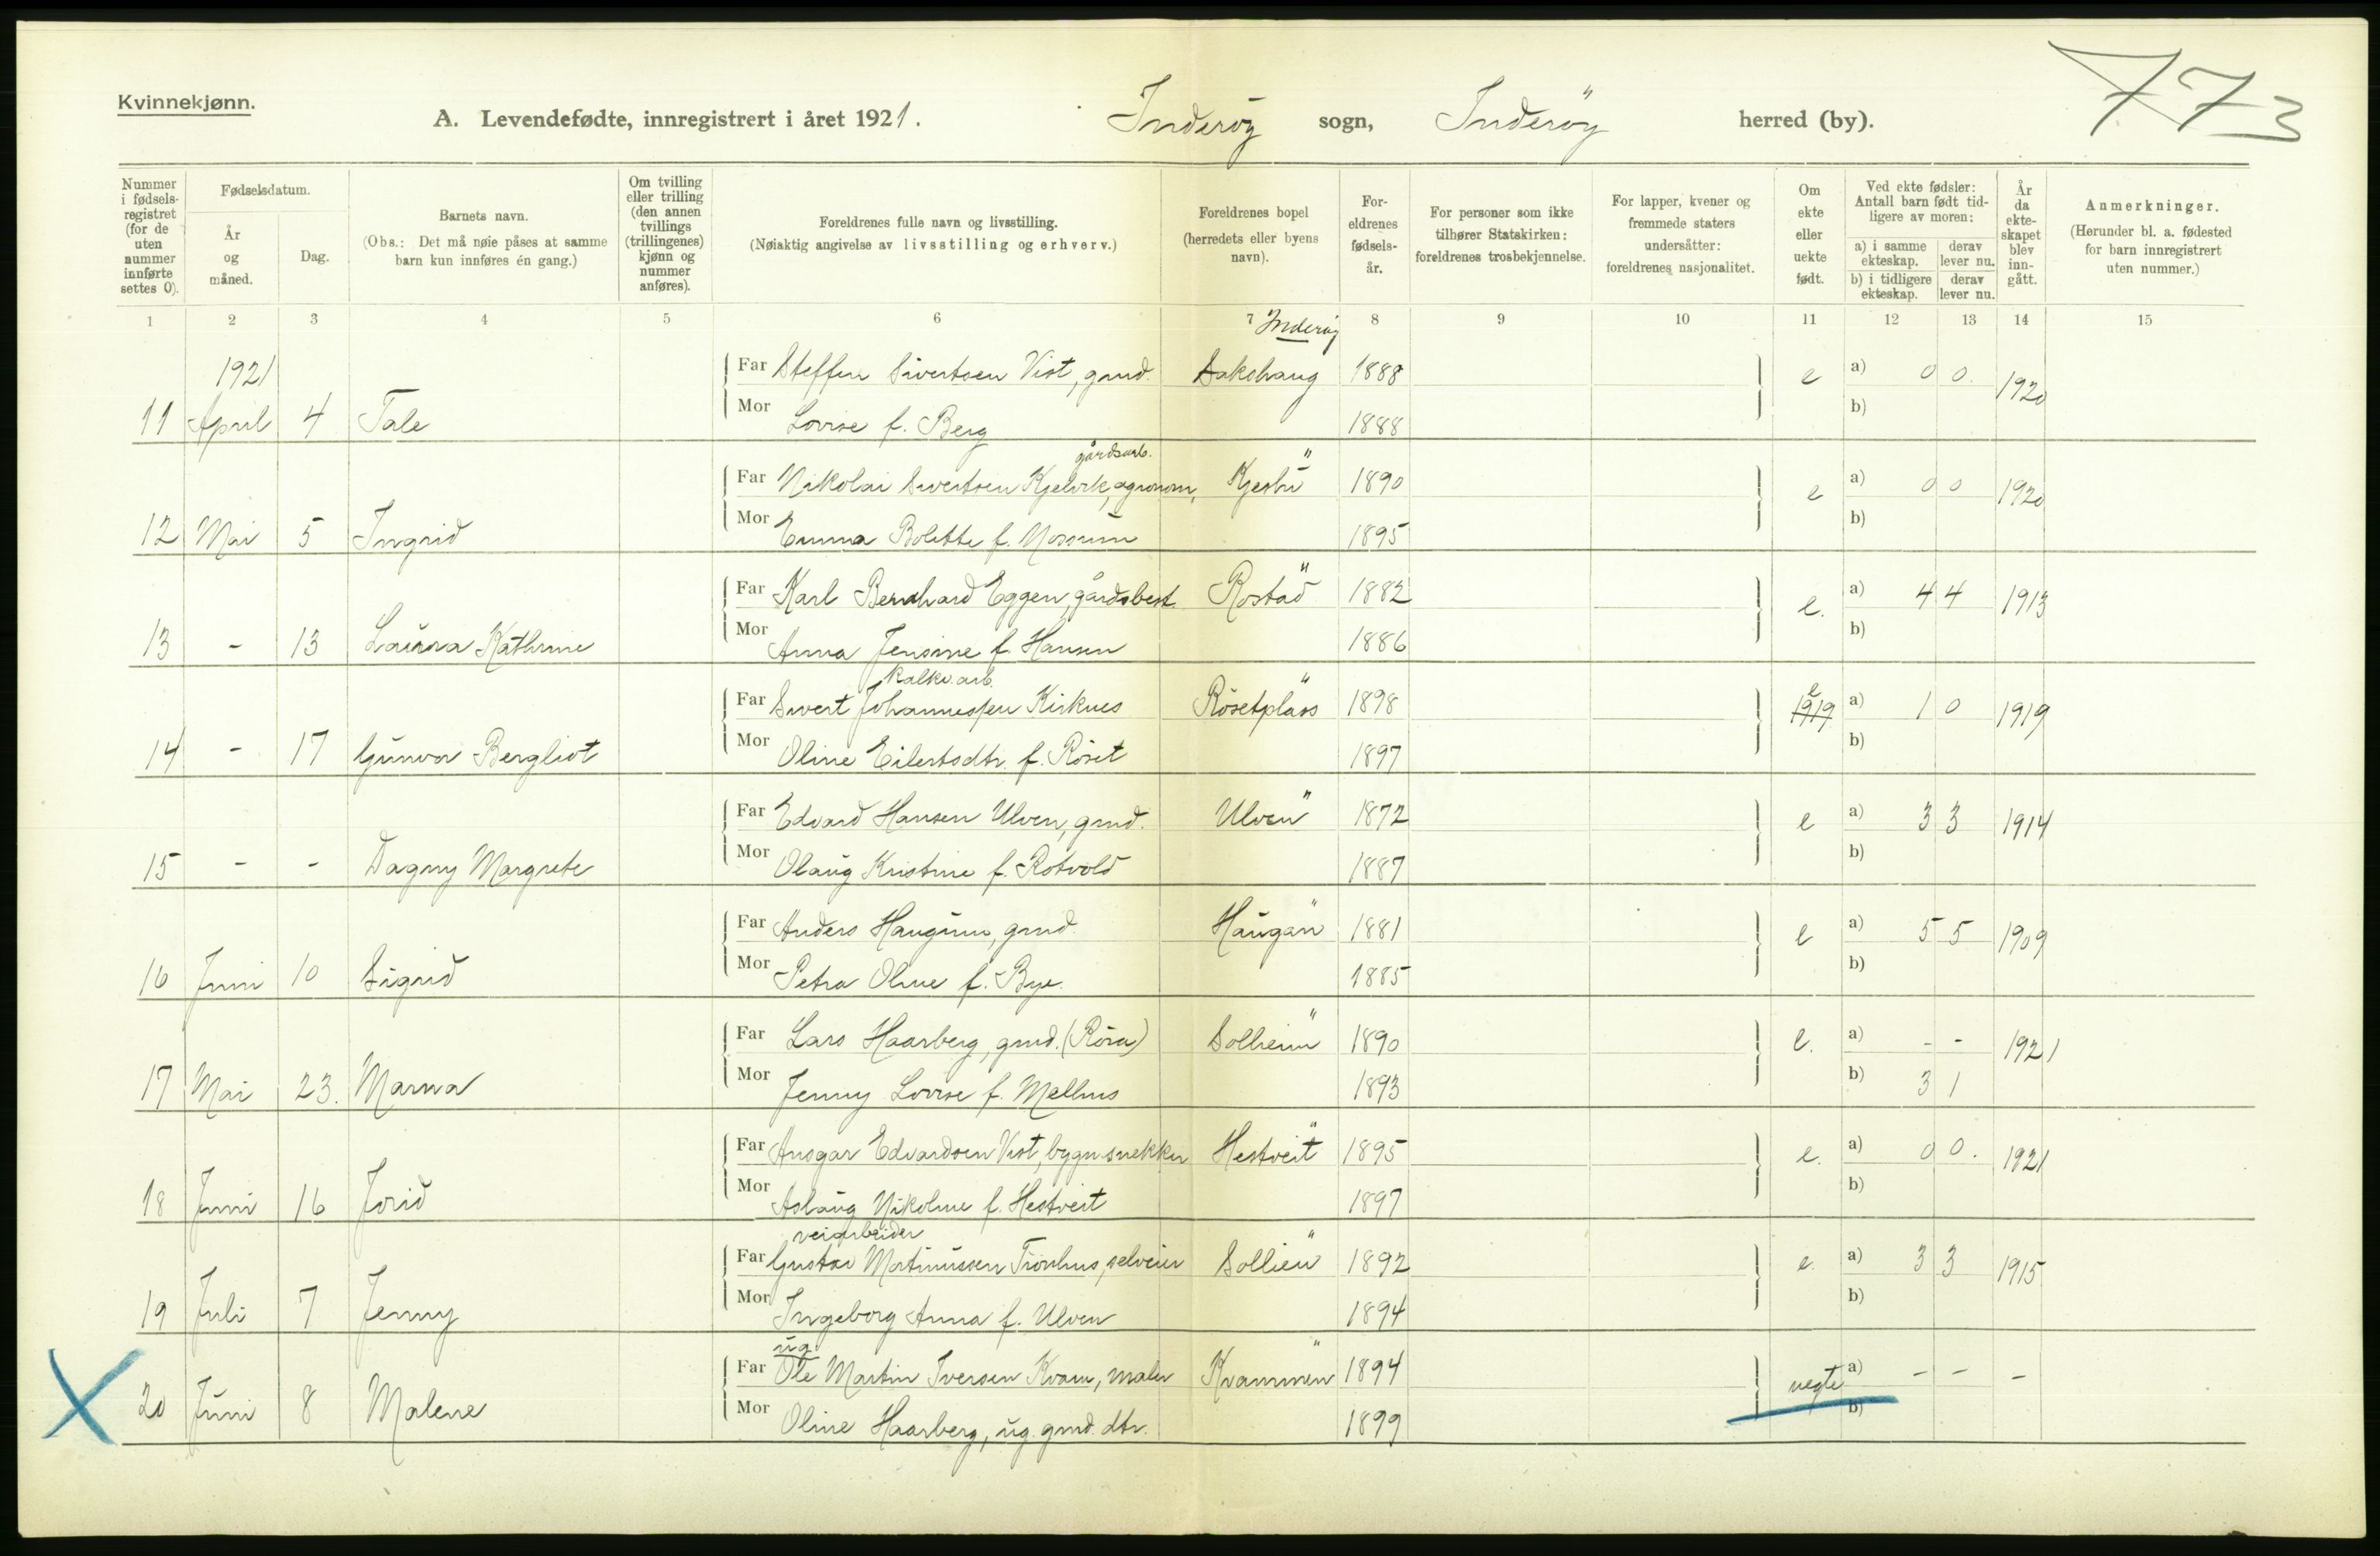 Kvinnekjønn.
A. Levendefødte, innregistrert i året 1921. Inderöy sogn, Inderöy herred (by).
773
Nummer i fødsels-registret (for de uten nummer innførte settes 0).
Fødselsdatum.
År og måned.
Dag.
Barnets navn.
(Obs.: Det må nøie påses at samme barn kun innføres én gang.)
Om tvilling eller trilling (den annen tvillings (trillingenes) kjønn og nummer anføres).
Foreldrenes fulle navn og livsstilling.
(Nøiaktig angivelse av livsstilling og erhverv.)
Foreldrenes bopel (herredets eller byens navn).
For-eldrenes fødsels-år.
For personer som ikke tilhører Statskirken: foreldrenes trosbekjennelse.
For lapper, kvener og fremmede staters undersåtter: foreldrenes nasjonalitet.
Om ekte eller uekte født.
Ved ekte fødsler: Antall barn født tid-ligere av moren:
a) i samme ekteskap. derav lever nu.
b) i tidligere ekteskap. derav lever nu.
År da ekte-skapet blev inn-gått.
Anmerkninger.
(Herunder bl. a. fødested for barn innregistrert uten nummer.)
1 2 3 4 5 6 7 8 9 10 11 12 13 14 15
Inderøy
1921
Far Steffen Sivertsen Vist, grmd. Sakshaug 1888 e a) 0 0. 1920
11 April 4 Tale Mor Lovise f. Berg 1888 b)
gårdsarb.
Far Nikolai Sivertsen Kjelvik, agronom, Kjesbu " 1890 e a) 0 0 1920
12 Mai 5 Ingrid Mor Emma Bolette f. Mossum 1895 b)
Far Karl Bernhard Eggen, gårdsbest. Rostad " 1882 e. a) 4 4 1913
13 - 13 Laura Kathrine Mor Anna Jensine f. Hansen 1886 b)
kalkv.arb.
Far Sivert Johannessen Kirknes Rösetplass " 1898 1919 e a) 1 0 1919
14 - 17 Gunvor Bergliot Mor Oline Eilertsdtr. f. Röset 1897 b)
Far Edvard Hansen Ulven, grmd. Ulven " 1872 e a) 3 3 1914
15 - - Dagny Margrete Mor Olaug Kristine f. Rotvold 1887 b)
Far Anders Haugum, grmd. Haugan " 1881 e a) 5 5 1909
16 Juni 10 Sigrid Mor Petra Oline f. Bye. 1885 b)
Far Lars Haarberg, grmd. (Röra) Solheim " 1890 e. a) - - 1921
17 Mai 23. Marna Mor Jenny Lovise f. Melhus 1893 b) 3 1
Far Ansgar Edvardsen Vist, bygn.snekker Hestveit " 1895 e. a) 0 0. 1921
18 Juni 16 Jorid Mor Aslaug Nikoline f. Hestveit 1897 b)
veiarbeider
Far Gustav Martinussen Tronhus, selveier Sollien " 1892 e. a) 3 3 1915
19 Juli 7 Jenny Mor Ingeborg Anna f. Ulven 1894 b)
ug.
Far Ole Martin Iversen Kvam, maler Kvammen " 1894 uegte a) - - -
20 Juni 8 Malene Mor Oline Haarberg, ug. grmd. dtr. 1899 b)